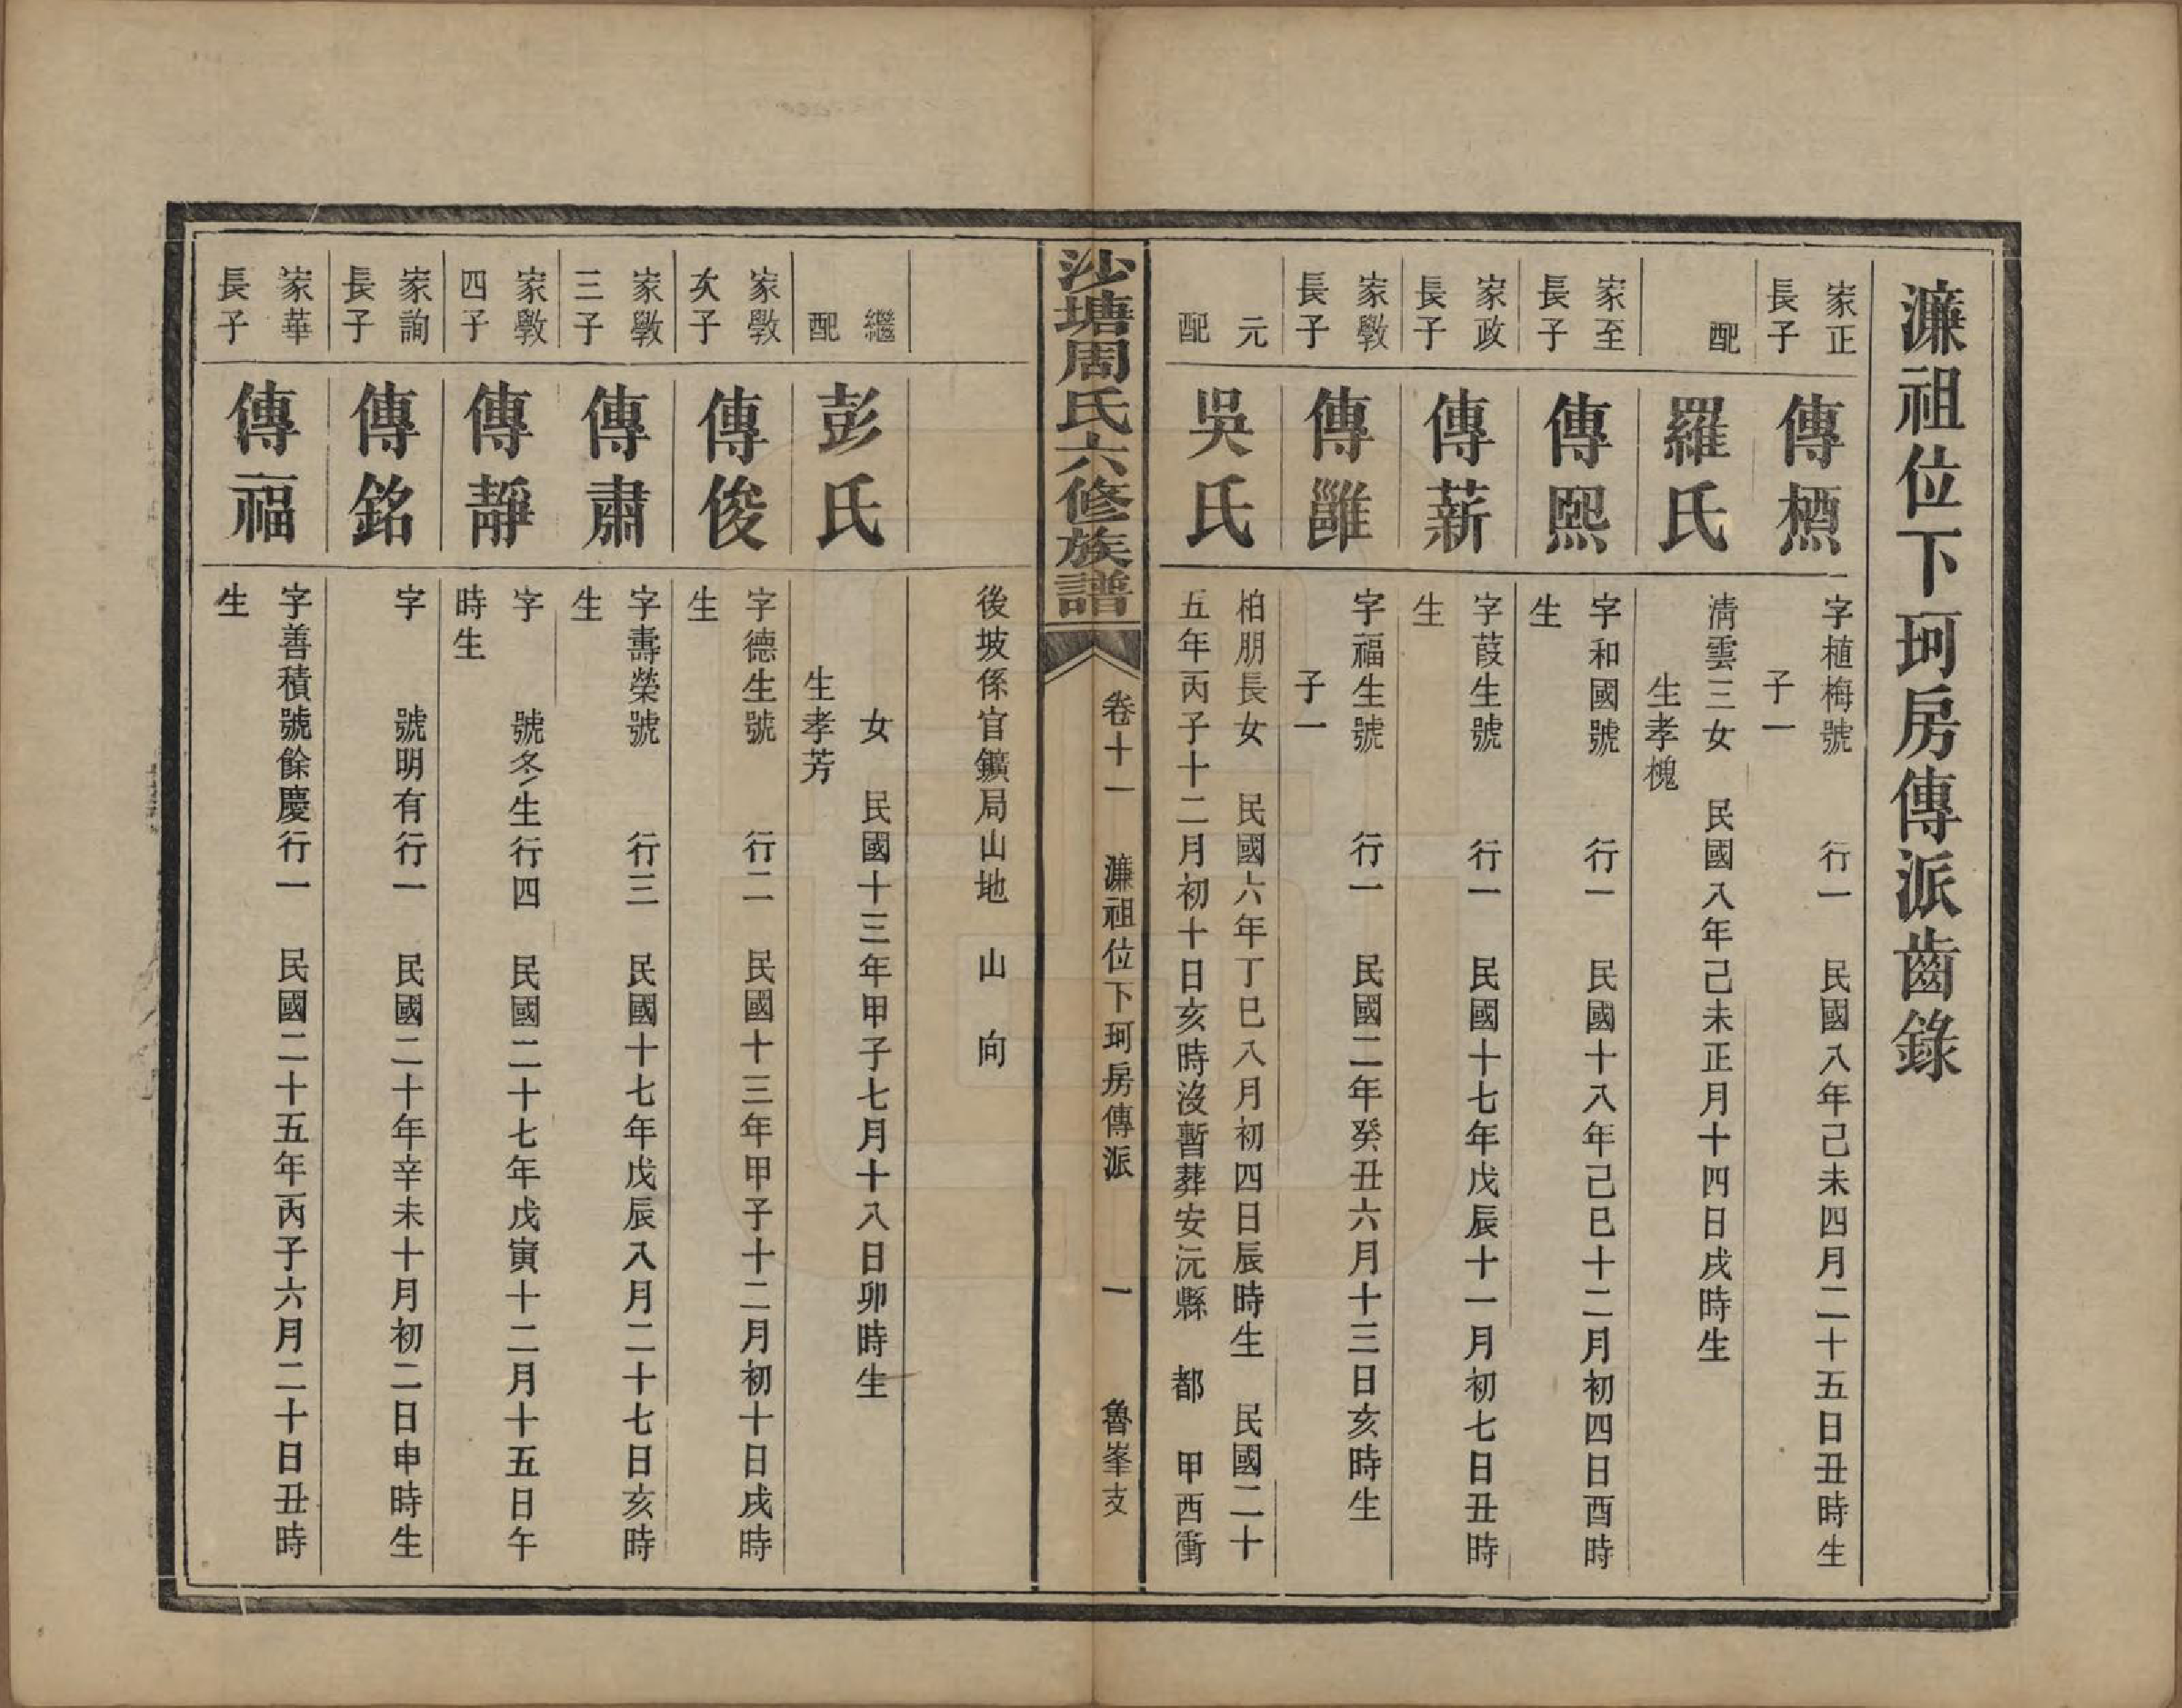 濂祖位下珂房傳派齒錄
家正
長子
傳槱
字植梅號　　行一　民國八年己未四月二十五日丑時生
子一
配
羅氏
淸雲三女　民國八年己未正月十四日戌時生
生孝槐
家至
長子
傳熙
字和國號　　行一　民國十八年己巳十二月初四日酉時
生
家政
長子
傳薪
字葭生號　　行一　民國十七年戊辰十一月初七日丑時
生
家斆
長子
傳雝
字福生號　　行一　民國二年癸丑六月十三日亥時生
子一
元
配
吳氏
柏朋長女　民國六年丁巳八月初四日辰時生　民國二十
五年丙子十二月初十日亥時沒暫葬安沅縣　都　甲西衝
沙塘周氏六修族譜
卷十一　濂祖位下珂房傳派　　一　　魯峯支
後坡係官鑛局山地　山　向
繼
配
彭氏
女　民國十三年甲子七月十八日卯時生
生孝芳
家斆
次子
傳俊
字德生號　　行二　民國十三年甲子十二月初十日戌時
生
家斆
三子
傳肅
字壽榮號　　行三　民國十七年戊辰八月二十七日亥時
生
家斆
四子
傳靜
字　　號冬生行四　民國二十七年戊寅十二月十五日午
時生
家詢
長子
傳銘
字　　號明有行一　民國二十年辛未十月初二日申時生
家華
長子
傳福
字善積號餘慶行一　民國二十五年丙子六月二十日丑時
生